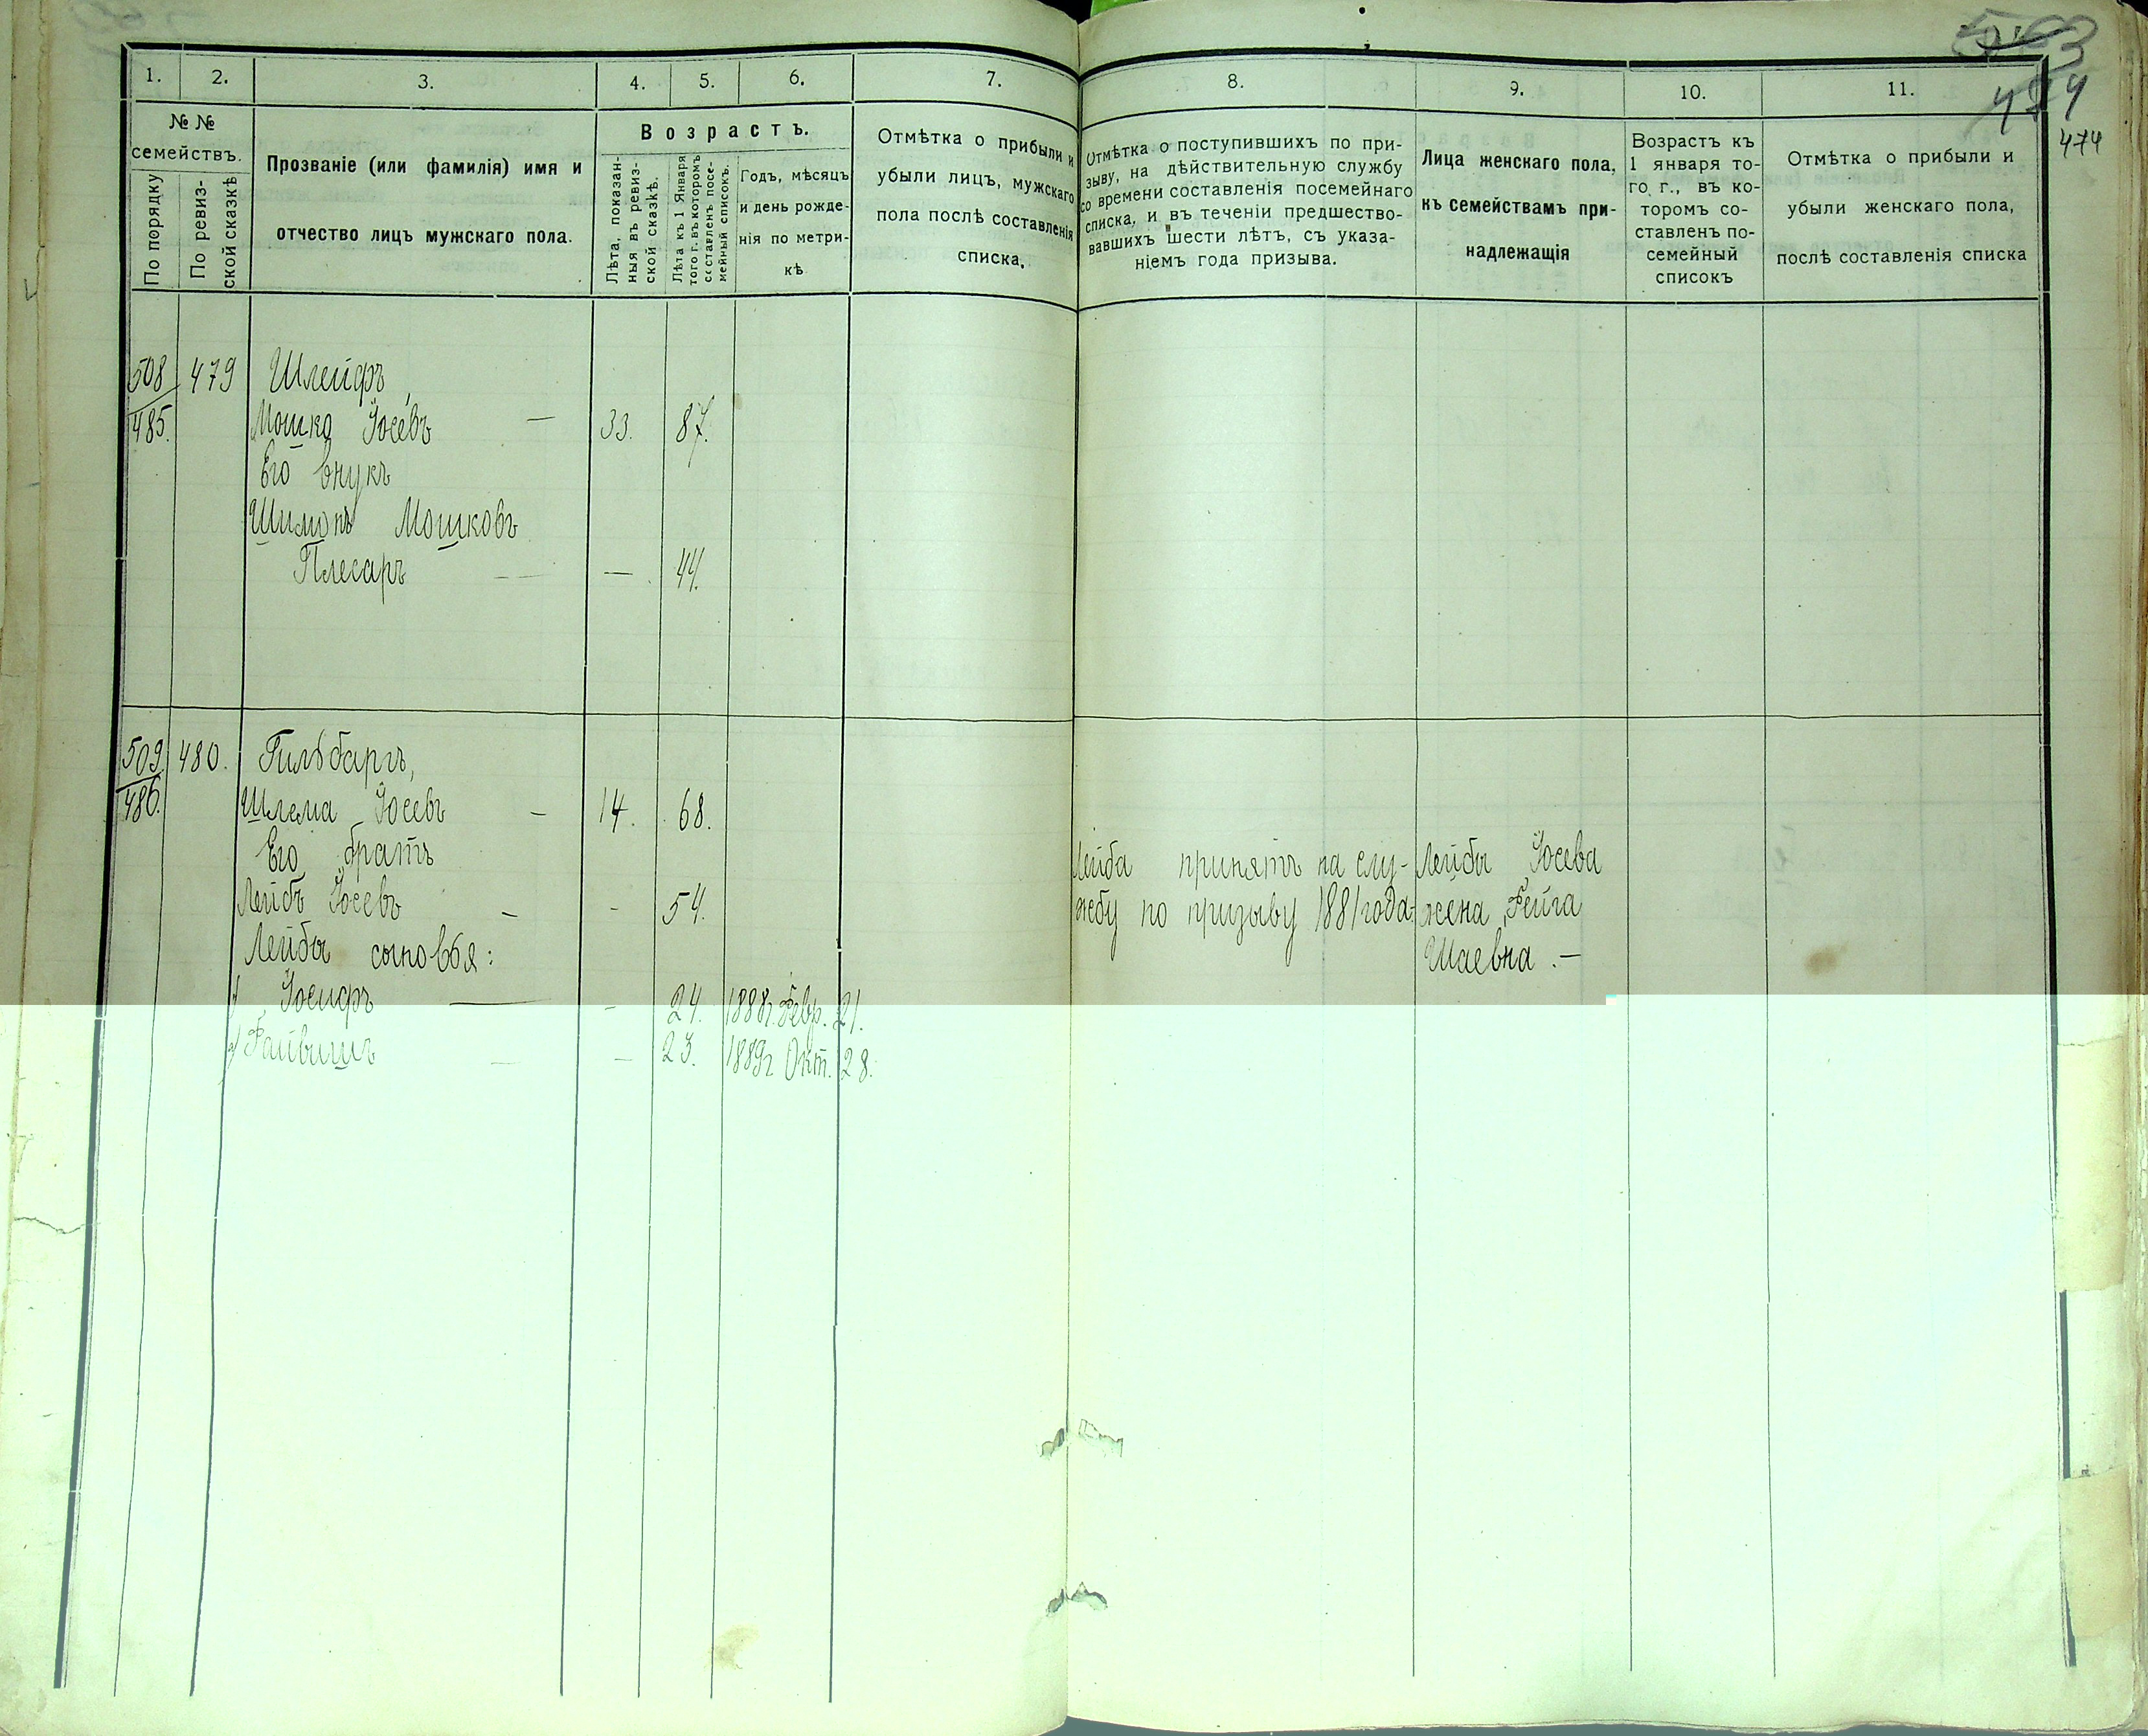 474
474
1. 2. 3. 4. 5. 6. 7. 8. 9. 10. 11.
№ №
семействъ.
По порядку
По ревиз-
ской сказкѣ
Прозваніе (или фамилія) имя и
отчество лицъ мужскаго пола.
Возрастъ.
Лѣта, показан-
ныя въ ревиз-
ской сказкѣ.
Лѣта къ 1 Января
того г. въ которомъ
составленъ посе-
мейный списокъ.
Годъ, мѣсяцъ
и день рожде-
нія по метри-
кѣ
Отмѣтка о прибыли и
убыли лицъ, мужскаго
пола послѣ составленія
списка.
Отмѣтка о поступившихъ по при-
зыву, на дѣйствительную службу
со времени составленія посемейнаго
списка, и въ теченіи предшество-
вавшихъ шести лѣтъ, съ указа-
ніемъ года призыва.
Лица женскаго пола,
къ семействамъ при-
надлежащія
Возрастъ къ
1 января то-
го г., въ ко-
торомъ со-
ставленъ по-
семейный
списокъ
Отмѣтка о прибыли и
убыли женскаго пола,
послѣ составленія списка
508 479 Шлейфъ,
485. Мошко Іосевъ — 33. 87.
Его внукъ
Шимонъ Мошковъ
Плесаръ — — 44.
509 480. Гильбаргъ,
486. Шлема Іосевъ — 14. 68.
Его братъ
Лейбъ Іосевъ — - 54.
Лейбы сыновья:
1) Іосифъ — - 24. 1888г. Февр. 21.
2) Файвишъ — — 23. 1889г. Окт. 28.
Лейба принятъ на слу-
жбу по призыву 1881 года.
Лейбы Іосева
жена Фейга
Шаевна. —